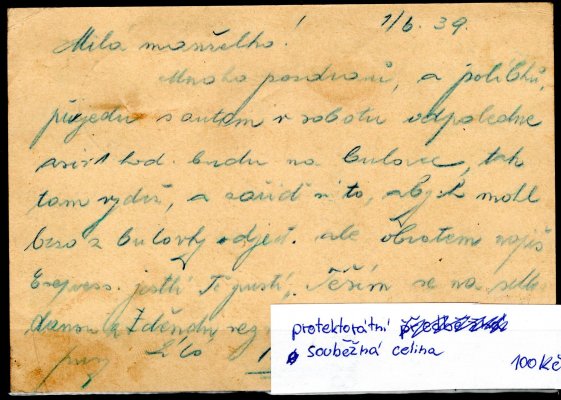 1/6. 39.
Milá manželko!
Mnoho pozdravů, a polibků,
přijedu s autem v sobotu odpoledne
asi v 1 hod. budu na Bulovce, tak
tam vyduš, a zařiď si to, abych mohl
brzo z Bulovky odjeď. ale obratem napiš
Express. jestli Tě pustí, Těším se na
a Zdeňdu
protektorátní
souběžná celina
100 Kč